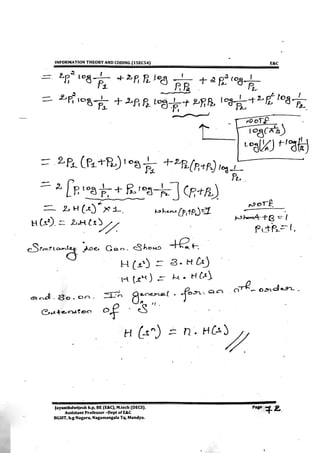 INFORMATION THEORY AND CODING (15EC54) E&C
= 2p₁² log 1/P₁ + 2P₁P₂ log 1/P₁P₂ + 2P₂² log 1/P₂
= 2P₁² log 1/P₁ + 2P₁P₂ log 1/P₁ + 2P₁P₂ log 1/P₂ + 2P₂² log 1/P₂
NOTE
= 2P₁ (P₁+P₂) log 1/P₁ + 2P₂ (P₁+P₂) log 1/P₂
= 2 [P₁ log 1/P₁ + P₂ log 1/P₂] (P₁+P₂)
NOTE
= 2 H(s) × 1 where (P₁+P₂)=1
P₁+P₂=1.
H(s²) = 2H(s) //
Similarly we can show that.
H(s³) = 3. H(s)
H(s⁴) = 4. H(s)
and so on. In general. for an nth order.
Extension of 'Sⁿ'.
H(sⁿ) = n. H(s) //
Assistant Professor -Dept of E&C
BGSIT, b.g Nagara, Nagamangala Tq, Mandya.
Page 72